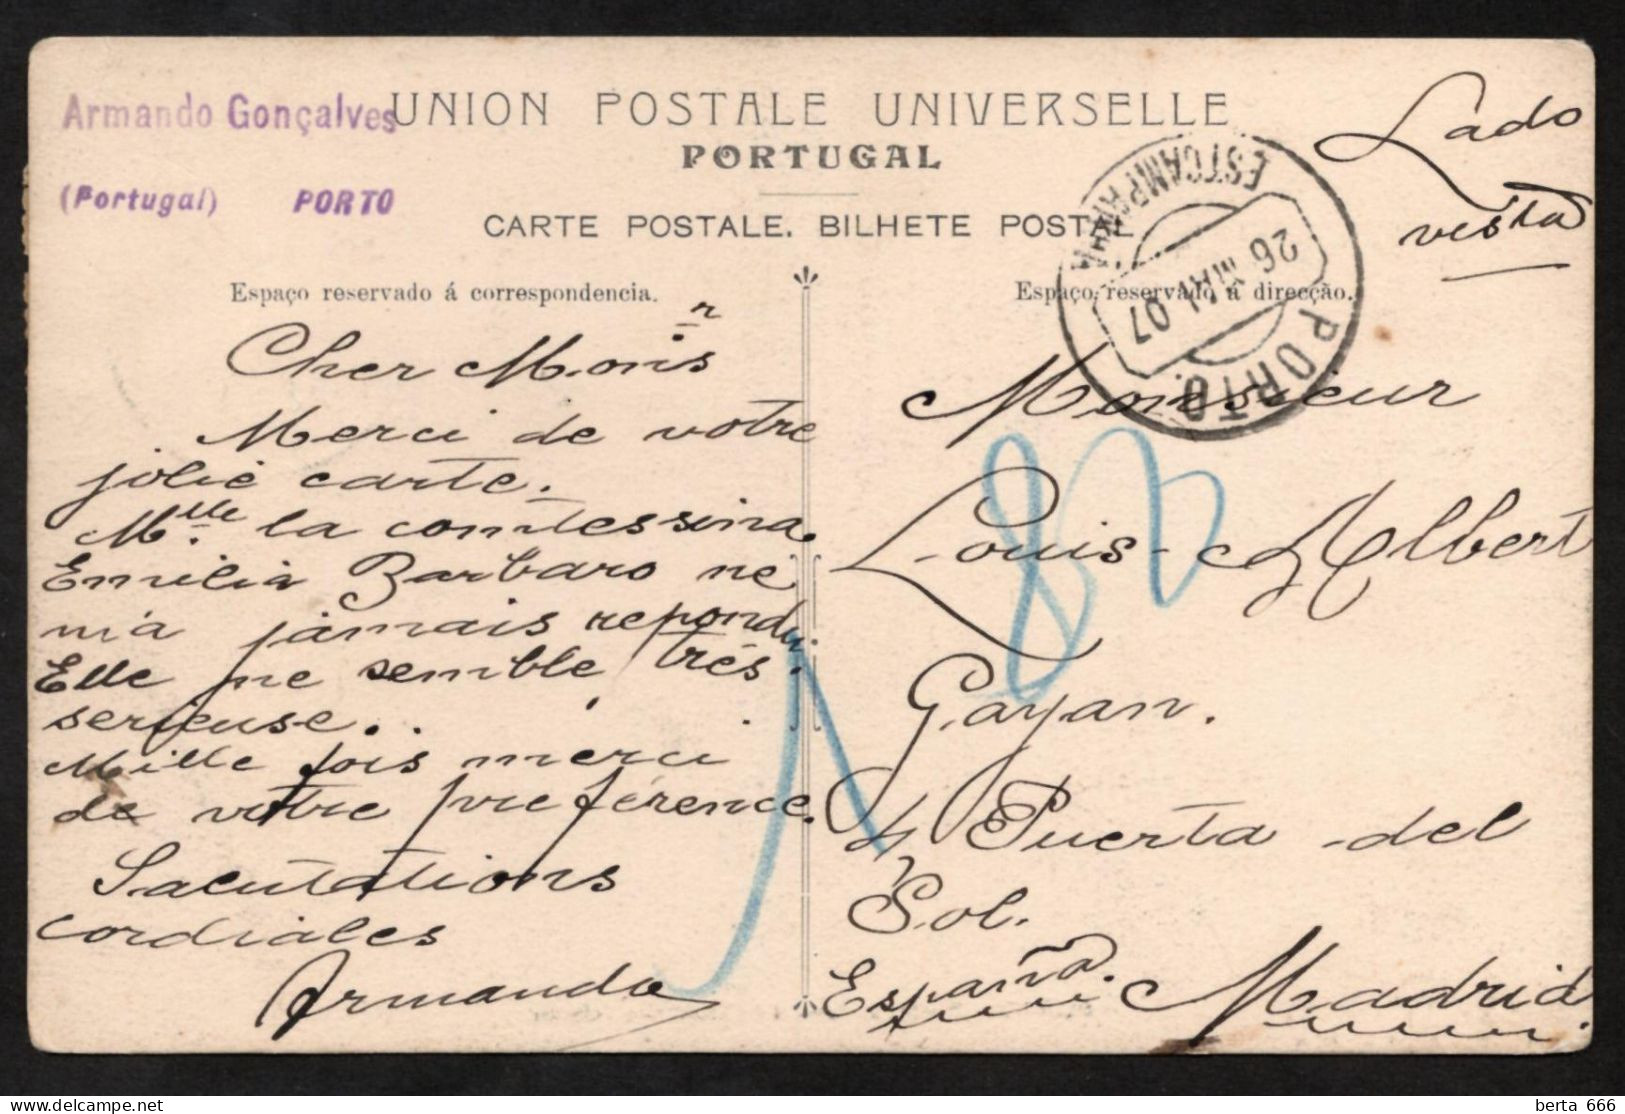 Armando Gonçalves
(Portugal) PORTO
UNION POSTALE UNIVERSELLE
PORTUGAL
CARTE POSTALE. BILHETE POSTAL
Lado
vista
PORTO.
EST CAMPANHÃ
26 MAI 07
Espaço reservado á correspondencia.
Cher Mons.r
Merci de votre
jolie carte.
Mlle. la comtessina
Emilia Barbaro ne
m'a jámais repondu.
Elle ne semble trés
serieuse..
Mille fois merci
de votre préférence.
Salutations
cordiales
Armando
Espaço reservado á direcção.
Monsieur
Louis-Albert
Gayan.
4, Puerta del
Sol.
España. Madrid.
82
berta 666